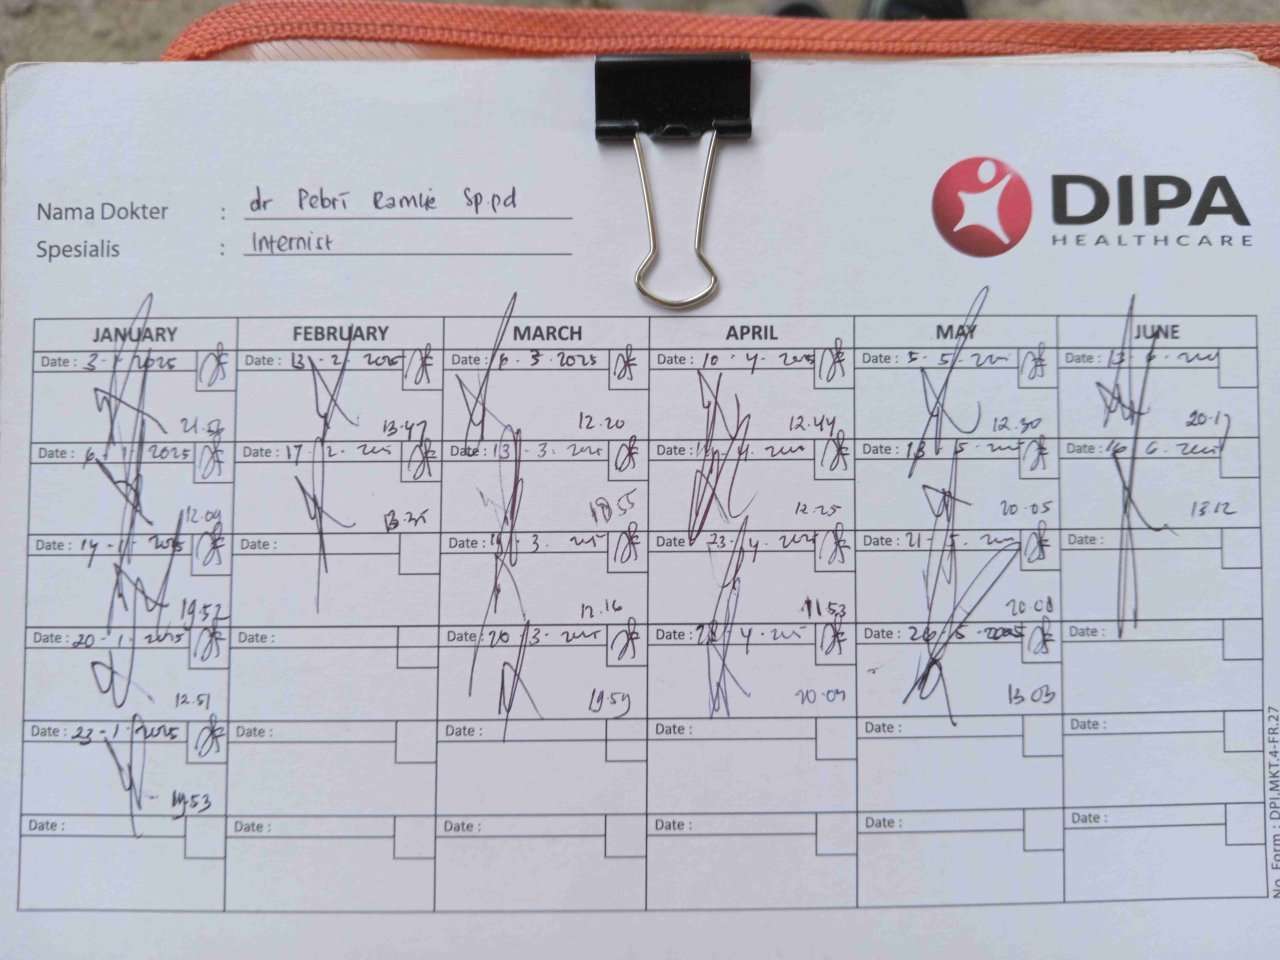 DIPA
HEALTHCARE
Nama Dokter : dr Pebri Ramlie Sp.pd
Spesialis : Internist
JANUARY FEBRUARY MARCH APRIL MAY JUNE
Date : 3-1-2025 Date : 13-2-2025 Date : 6-3-2025 Date : 10-4-2025 Date : 5-5- Date : 13-6-
13.47 12.20 12.44 12.30 20.17
Date : 6-1-2025 Date : 17-2- Date : 13-3- Date : -4- Date : 13-5- Date : 16-6-
12.09 13.35 18.55 12.25 20.05 13.12
Date : 14-1-2025 Date : Date : -3- Date : 23-4-2025 Date : 21-5- Date :
19.52 12.16 11.53 20.08
Date : 20-1-2025 Date : Date : 20-3- Date : 28-4- Date : 26-5-2025 Date :
12.51 19.59 20.09 13.03
Date : 23-1-2025 Date : Date : Date : Date : Date :
19.53
Date : Date : Date : Date : Date : Date :
No. Form : DPI.MKT.4-FR.27